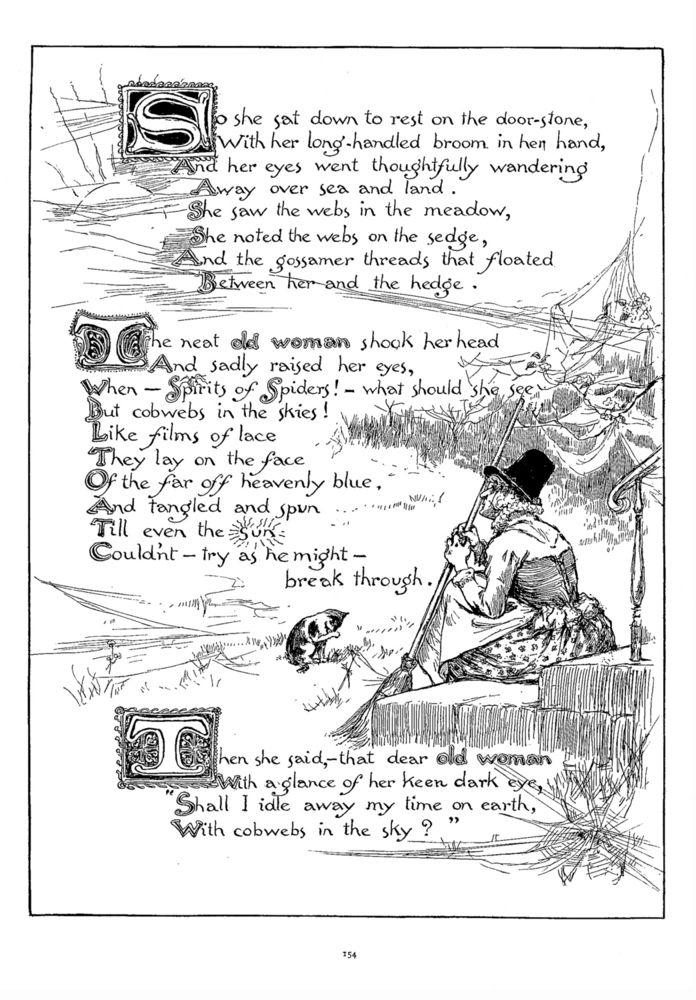 So she sat down to rest on the door-stone,
With her long-handled broom in her hand,
And her eyes went thoughtfully wandering
Away over sea and land.
She saw the webs in the meadow,
She noted the webs on the sedge,
And the gossamer threads that floated
Between her and the hedge.
The neat old woman shook her head
And sadly raised her eyes,
When — Spirits of Spiders! — what should she see
But cobwebs in the skies!
Like films of lace
They lay on the face
Of the far off heavenly blue,
And tangled and spun
Till even the sun
Couldn't — try as he might —
break through.
Then she said,—that dear old woman
With a glance of her keen dark eye,
"Shall I idle away my time on earth,
With cobwebs in the sky?"
154